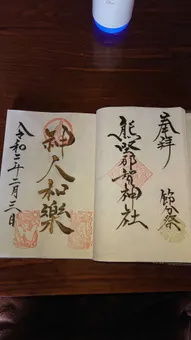 奉拝
節分祭
熊野那智神社
神人和樂
令和二年二月三日